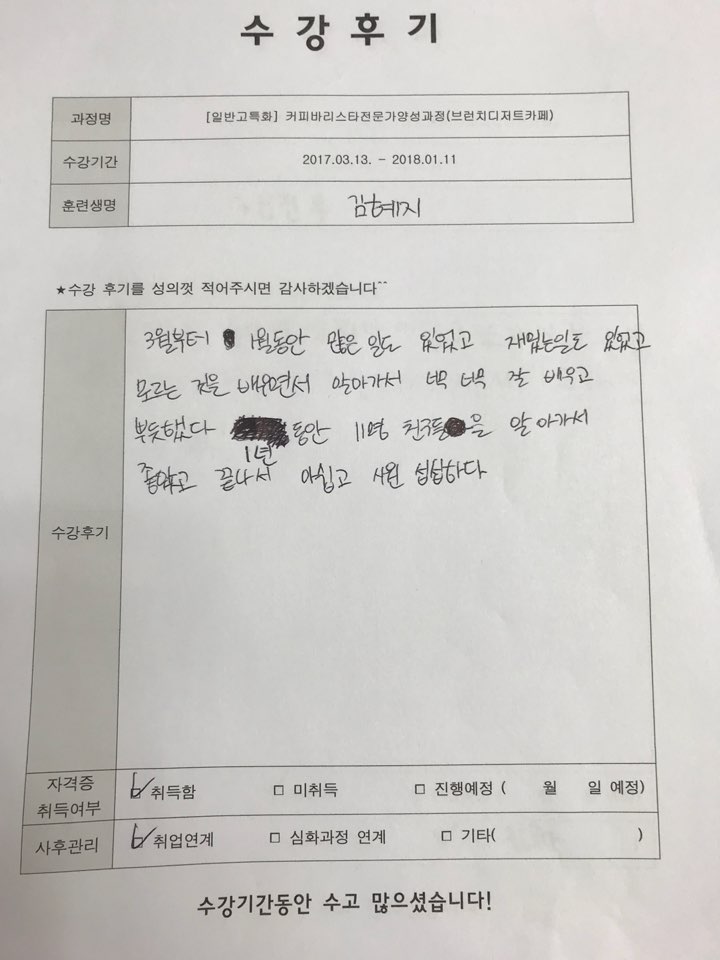 수강후기
과정명 [일반고특화] 커피바리스타전문가양성과정(브런치디저트카페)
수강기간 2017.03.13. - 2018.01.11
훈련생명 김혜지
★수강 후기를 성의껏 적어주시면 감사하겠습니다^^
수강후기
3월부터 1월동안 많은 일도 있었고 재밌는일도 있었고
모르는 것을 배우면서 알아가서 너무 너무 잘 배우고
부듯했다 동안 11명 친구들을 알아가서
1년
좋았고 끝나서 아쉽고 시원 섭섭하다
자격증 취득여부 ☑ 취득함 □ 미취득 □ 진행예정 ( 월 일 예정)
사후관리 ☑ 취업연계 □ 심화과정 연계 □ 기타( )
수강기간동안 수고 많으셨습니다!